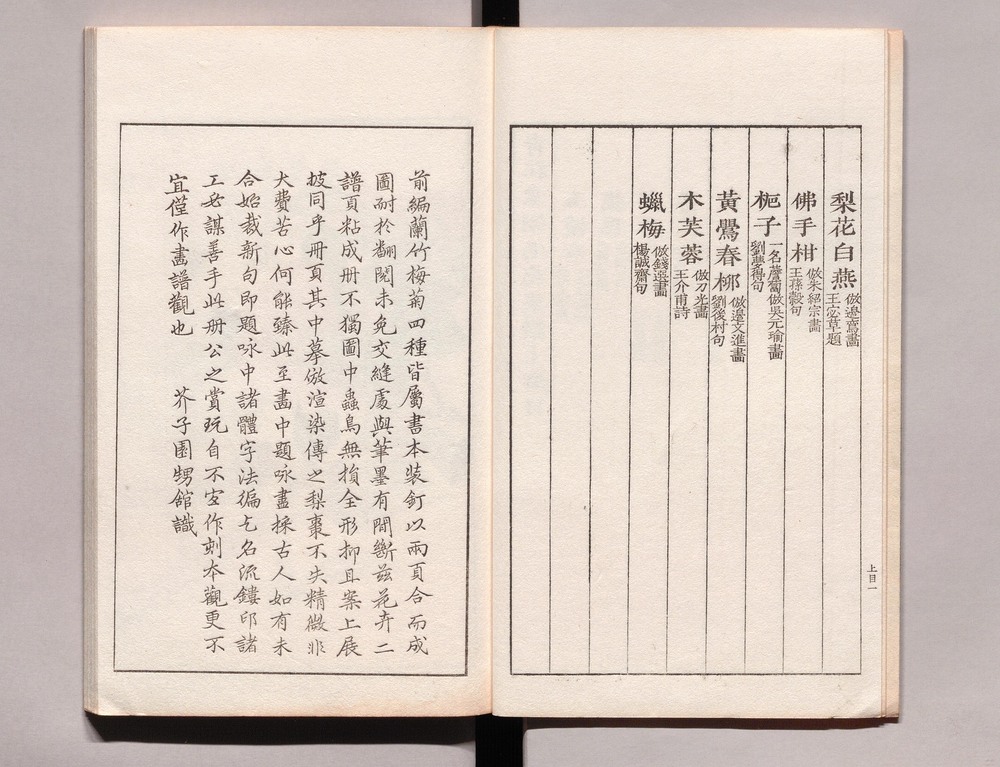 梨花白燕 倣邊鸞畫 王宓草題
佛手柑 倣朱紹宗畫 王蓀穀句
梔子 一名薝蔔倣吳元瑜畫 劉夢得句
黃鸎春柳 倣邊文進畫 劉後村句
木芙蓉 倣刀光畫 王介甫詩
蠟梅 倣錢選畫 楊誠齋句
上目一
前編蘭竹梅菊四種皆屬書本裝釘以兩頁合而成
圖耐於翻閱未免交縫處與筆墨有間斷茲花卉二
譜頁粘成册不獨圖中蟲鳥無損全形抑且案上展
披同乎册頁其中摹倣渲染傳之梨棗不失精微非
大費苦心何能臻此至畫中題咏盡採古人如有未
合始裁新句即題咏中諸體字法徧乞名流鏤邱諸
工必謀善手此册公之賞玩自不宜作刻本觀更不
宜僅作畫譜觀也　芥子園甥館識